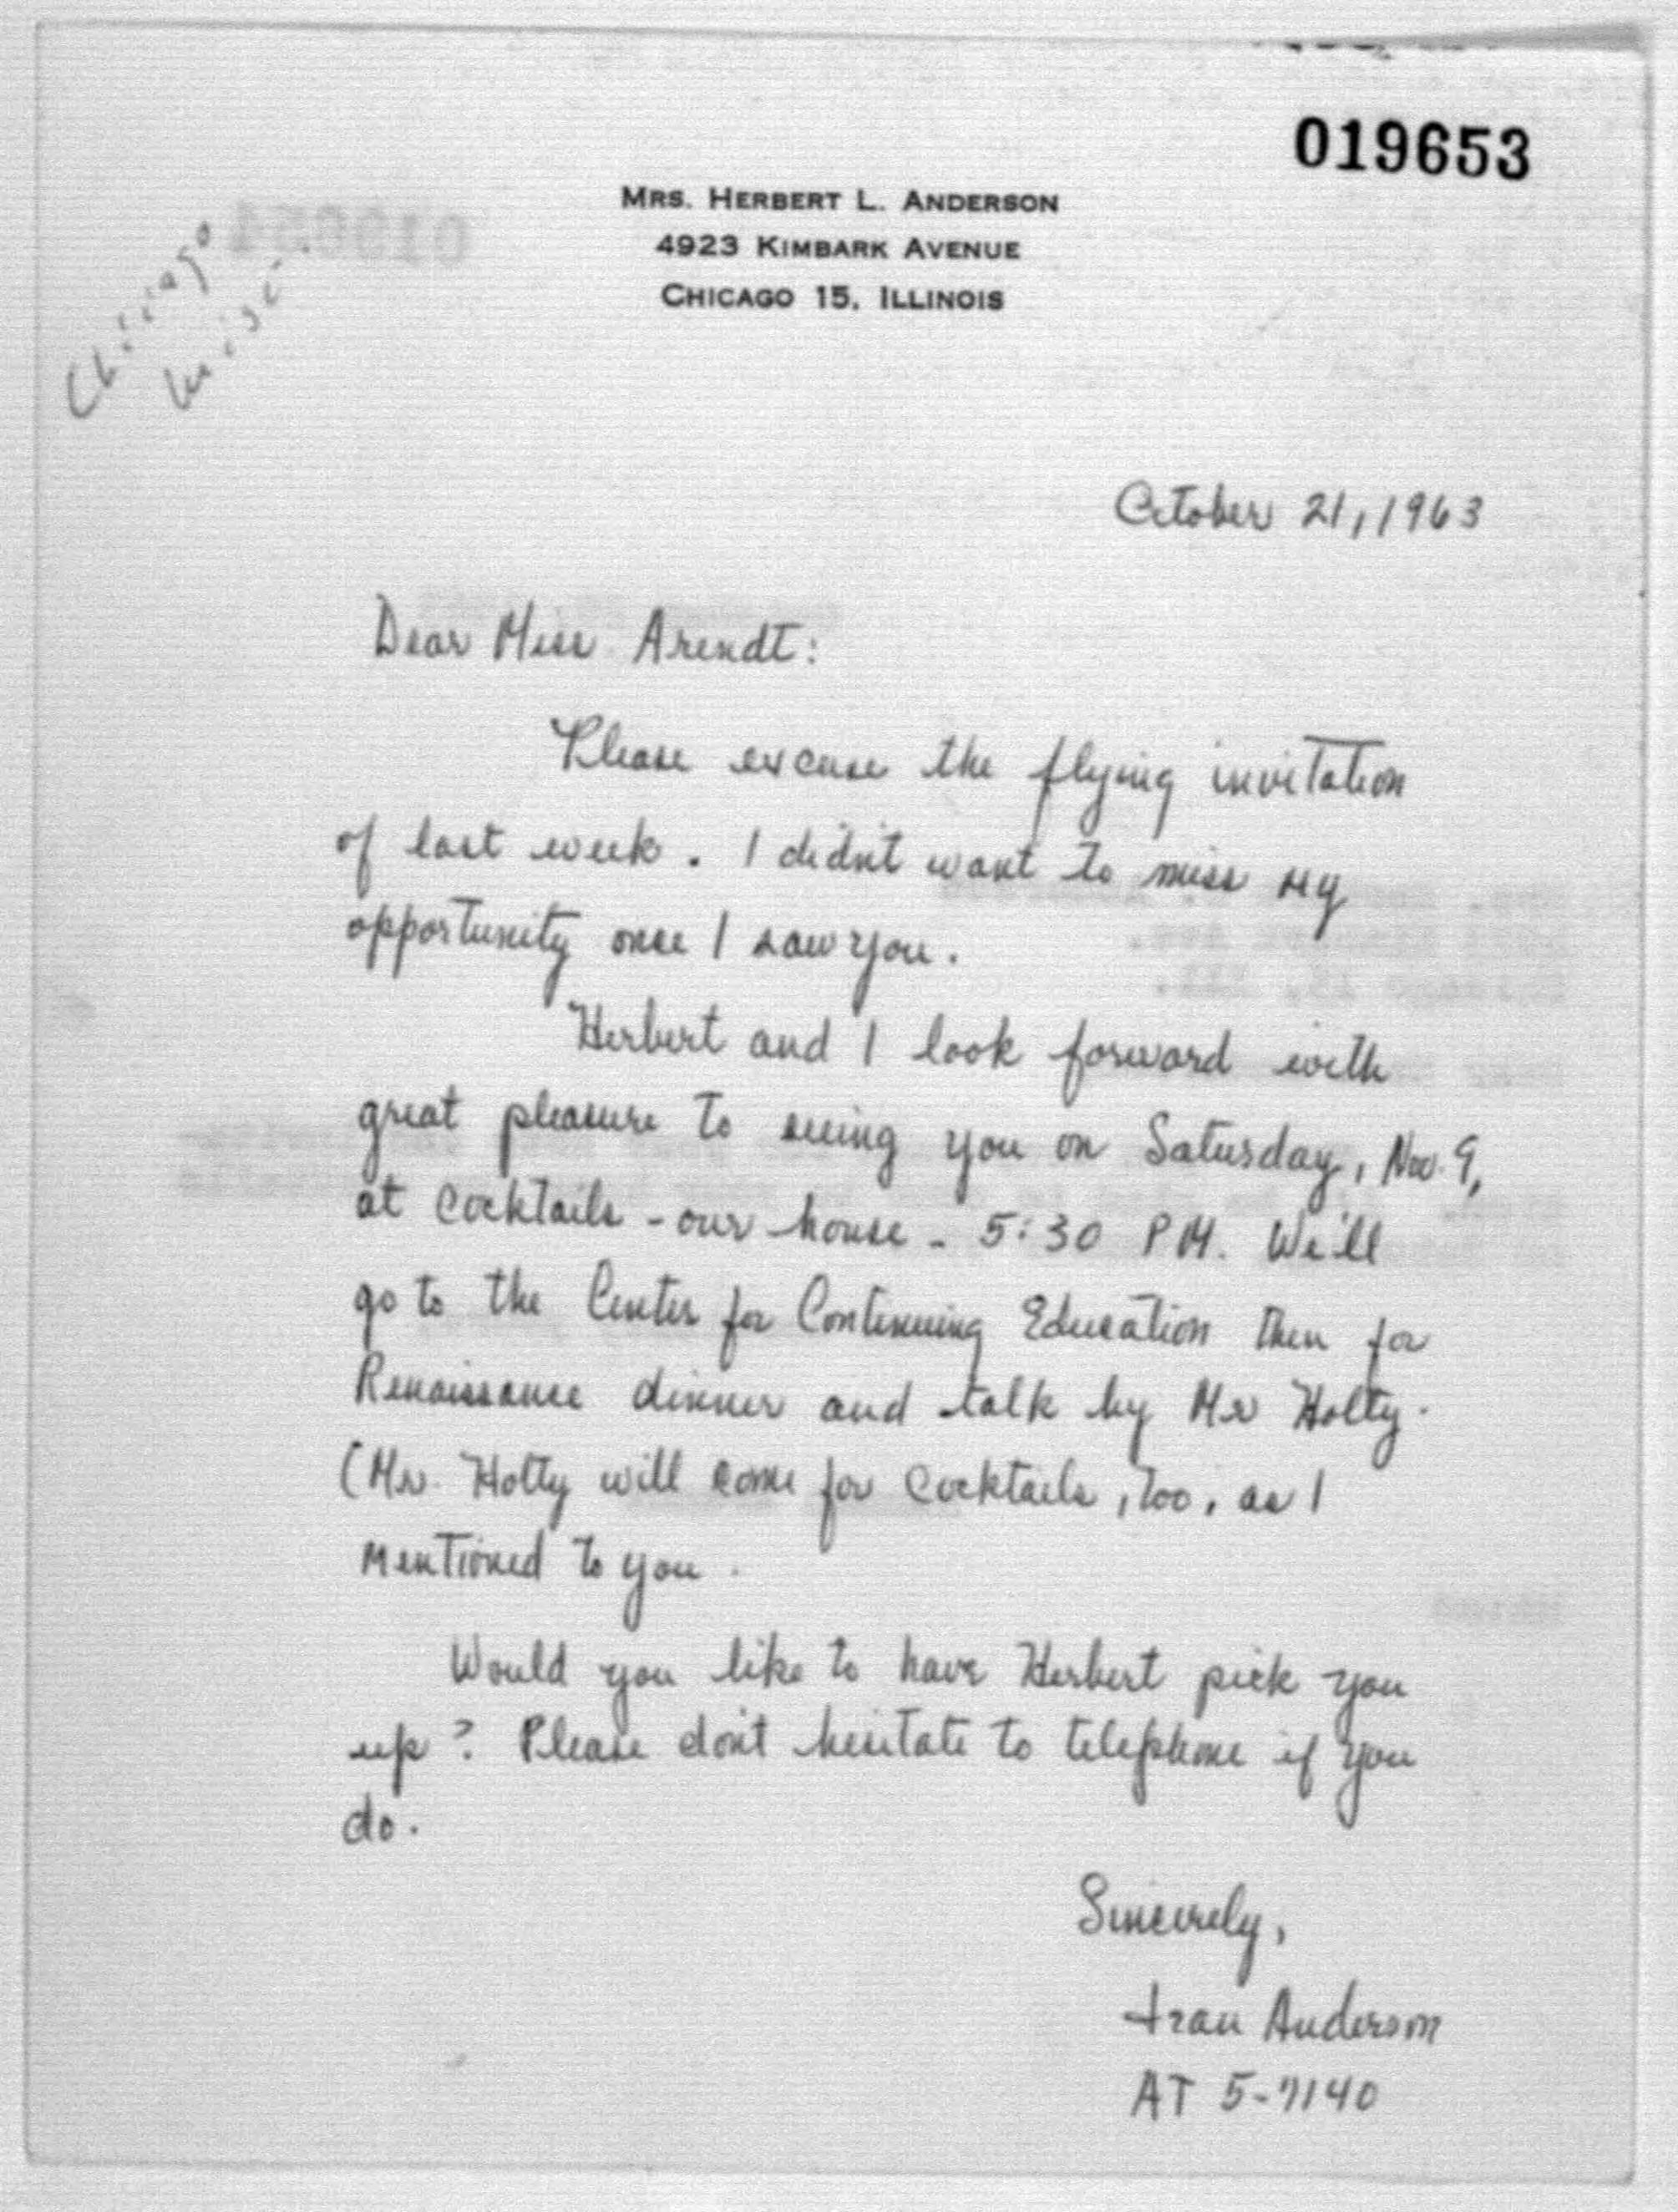 019653
MRS. HERBERT L. ANDERSON
4923 KIMBARK AVENUE
CHICAGO 15, ILLINOIS
Chicago
misc.
October 21, 1963
Dear Miss Arendt:
Please excuse the flying invitation
of last week. I didn't want to miss my
opportunity once I saw you.
Herbert and I look forward with
great pleasure to seeing you on Saturday, Nov. 9,
at cocktails - our house - 5:30 PM. We'll
go to the Center for Continuing Education then for
Renaissance dinner and talk by Mr Holty.
(Mr. Holty will come for cocktails, too, as I
mentioned to you.
Would you like to have Herbert pick you
up? Please don't hesitate to telephone if you
do.
Sincerely,
Fran Anderson
AT 5-7140